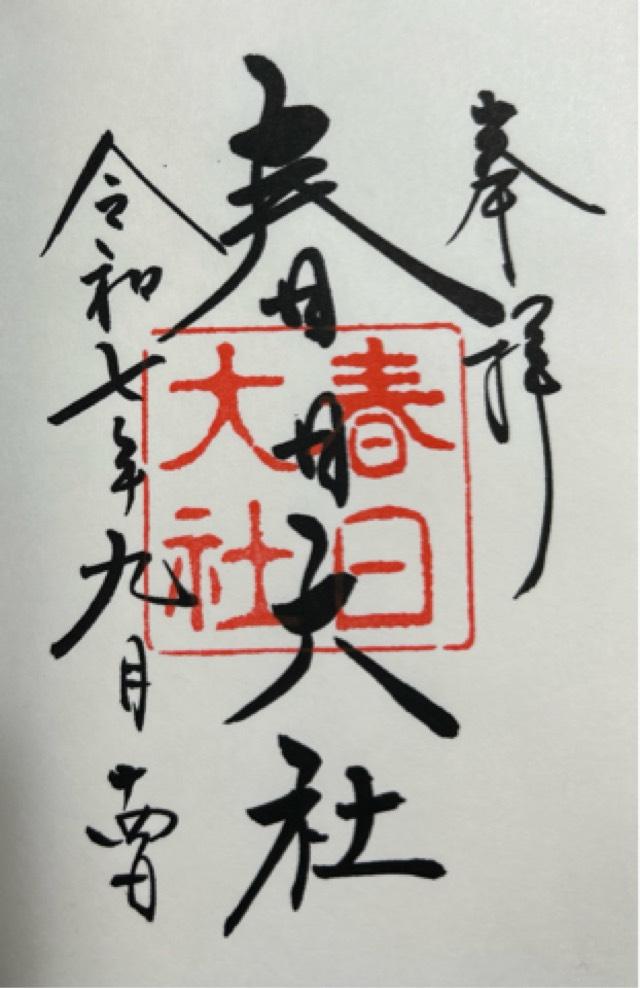 奉拝
春日大社
春日大社
令和七年九月十四日